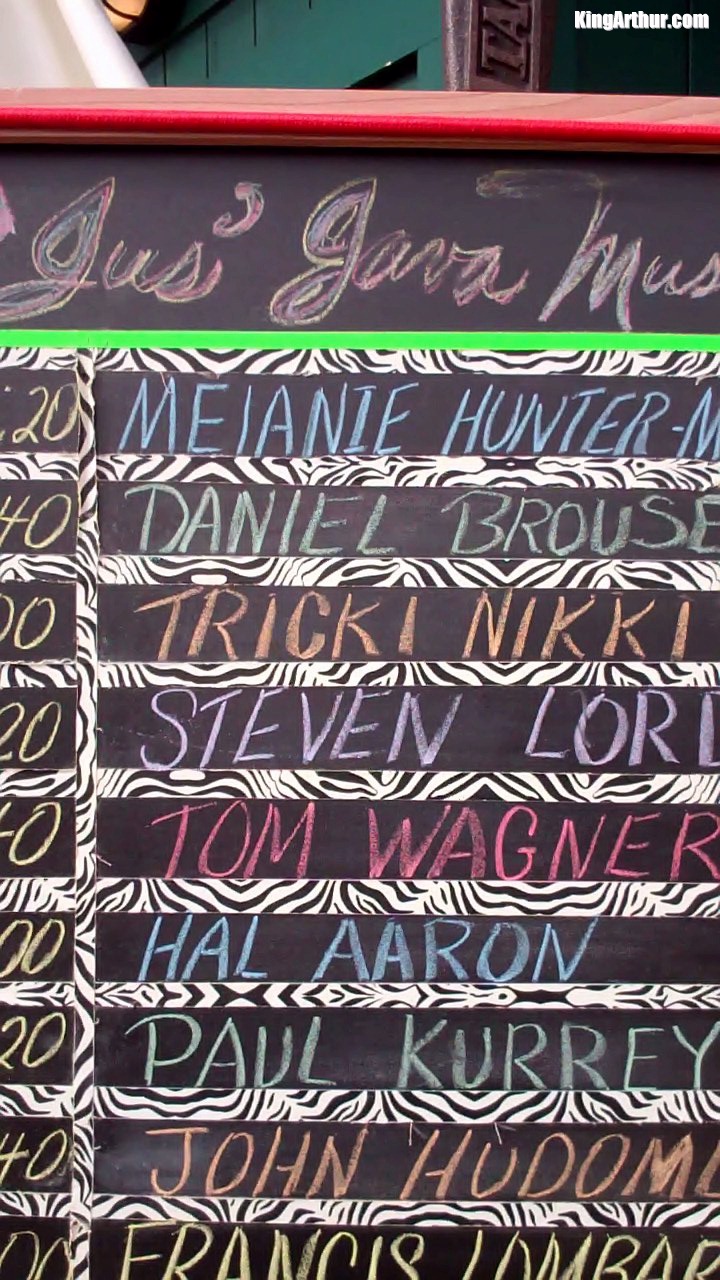 KingArthur.com
Jus' Java Mus
:20 MELANIE HUNTER-M
40 DANIEL BROUSE
00 TRICKI NIKKI
20 STEVEN LORD
40 TOM WAGNER
00 HAL AARON
20 PAUL KURREY
40 JOHN HUDOML
00 FRANCIS LOMBAR